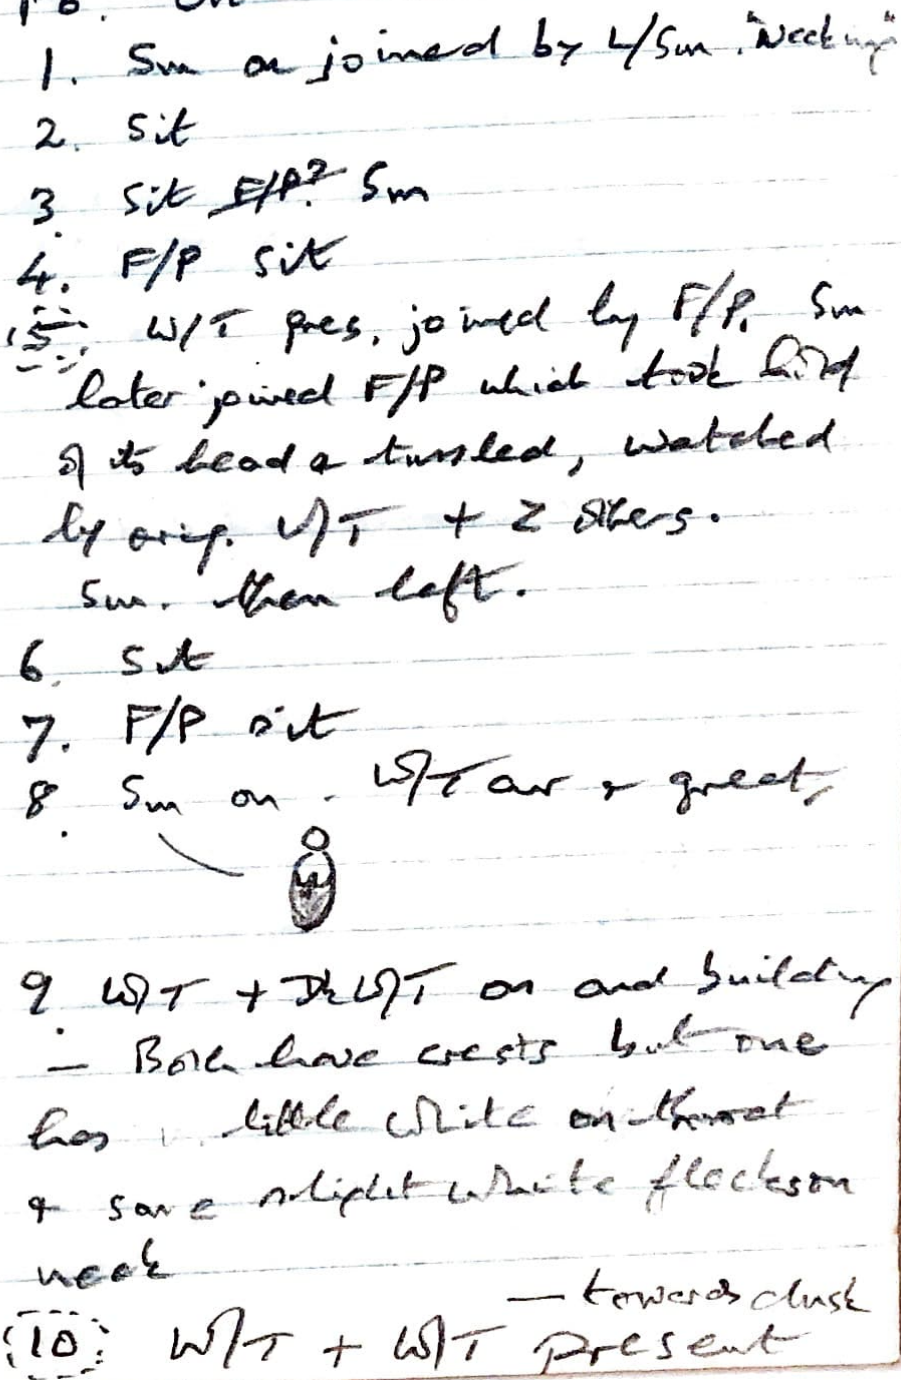 1. Sm on joined by L/Sm. "Necking"
2. Sit
3. Sit F/P? Sm
4. F/P sit
5. W/T pres. joined by F/P. Sm
later joined F/P which took hold
of its head & tussled, watched
by orig. W/T + 2 others.
Sm. then left.
6. Sit
7. F/P sit
8. Sm on - W/T arr & greet,
9. W/T + Dk W/T on and building
- Both have crests but one
has little white on throat
& some slight white flecks on
neck
- towards dusk
10. W/T + W/T present